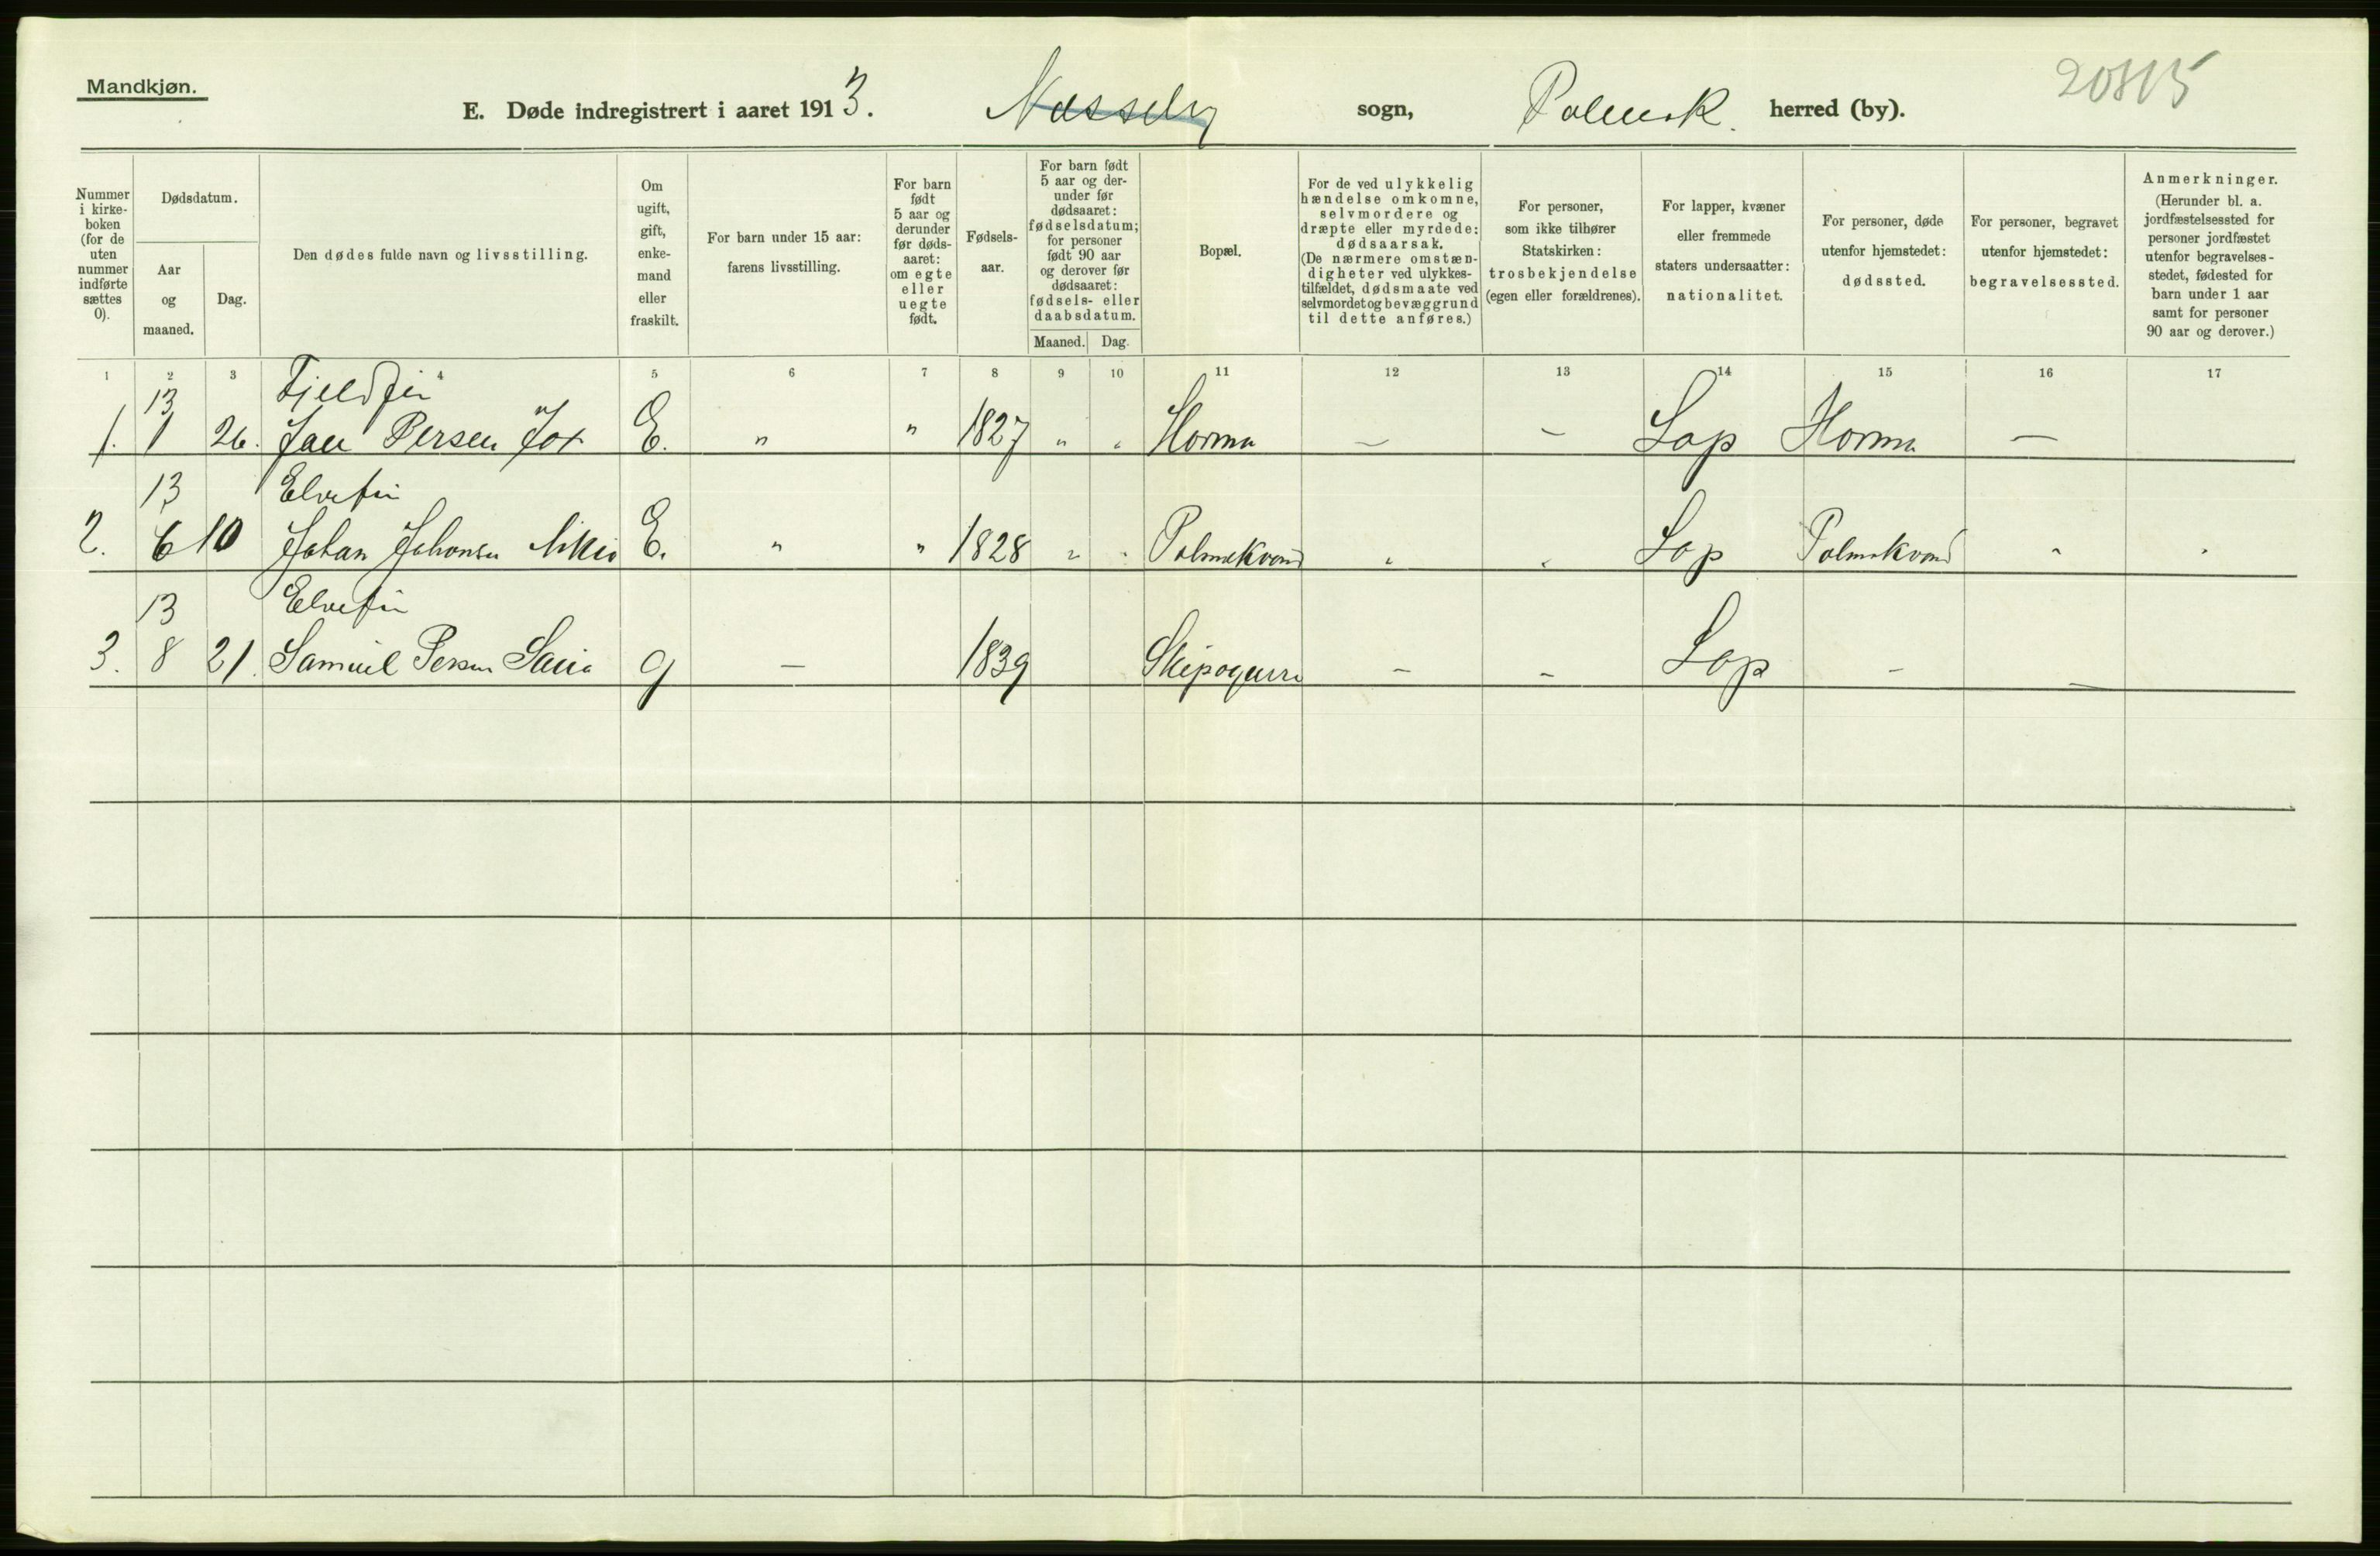 Mandkjøn.
E. Døde indregistrert i aaret 1913. Næsseby sogn, Polmak herred (by).
20815
Nummer i kirkeboken (for de uten nummer indførte sættes 0).
Dødsdatum.
Aar og maaned.
Dag.
Den dødes fulde navn og livsstilling.
Om ugift, gift, enkemand eller fraskilt.
For barn under 15 aar: farens livsstilling.
For barn født 5 aar og derunder før dødsaaret: om egte eller uegte født.
Fødselsaar.
For barn født 5 aar og derunder før dødsaaret: fødselsdatum; for personer født 90 aar og derover før dødsaaret: fødsels- eller daabsdatum.
Maaned. Dag.
Bopæl.
For de ved ulykkelig hændelse omkomne, selvmordere og dræpte eller myrdede: dødsaarsak. (De nærmere omstændigheter ved ulykkestilfældet, dødsmaate ved selvmordet og bevæggrund til dette anføres.)
For personer, som ikke tilhører Statskirken: trosbekjendelse (egen eller forældrenes).
For lapper, kvæner eller fremmede staters undersaatter: nationalitet.
For personer, døde utenfor hjemstedet: dødssted.
For personer, begravet utenfor hjemstedet: begravelsessted.
Anmerkninger. (Herunder bl. a. jordfæstelsessted for personer jordfæstet utenfor begravelsesstedet, fødested for barn under 1 aar samt for personer 90 aar og derover.)
1 2 3 4 5 6 7 8 9 10 11 12 13 14 15 16 17
13 Fjeldfin
1. 1 26. Jan Persen E. " " 1827 " " Horma — — Lap Horma —
13 Elvefin
2. 6 10 Johan Johansen E. " " 1828 " " Polmakvand " " Lap Polmakvand " "
13 Elvefin
3. 8 21. Samuel Persen g — 1839 Skipagurra — — Lap — —